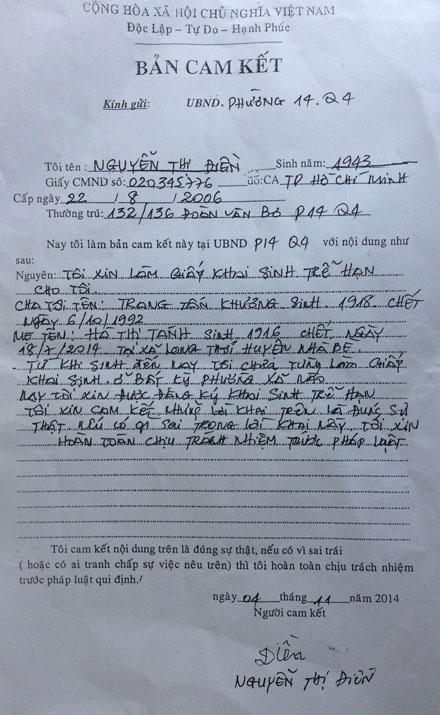 CỘNG HÒA XÃ HỘI CHỦ NGHĨA VIỆT NAM
Độc Lập – Tự Do – Hạnh Phúc
BẢN CAM KẾT
Kính gửi: UBND. PHƯỜNG 14. Q4
Tôi tên: NGUYỄN THỊ ĐIỀN Sinh năm: 1943
Giấy CMND số: 020345776 do: CA TP HỒ CHÍ MINH
Cấp ngày 22 / 8 / 2006
Thường trú: 132/136 ĐOÀN VĂN BƠ P14 Q4
Nay tôi làm bản cam kết này tại UBND P14 Q4 với nội dung như
sau:
Nguyên: TÔI XIN LÀM GIẤY KHAI SINH TRỄ HẠN
CHO TÔI.
CHA TÔI TÊN: TRANG TẤN KHƯƠNG SINH 1918 CHẾT
NGÀY 6/10/1992
MẸ TÊN: HÀ THỊ TANH SINH 1916 CHẾT NGÀY
18/7/2014 TẠI XÃ LONG THỚI HUYỆN NHÀ BÈ.
TỪ KHI SINH ĐẾN NAY TÔI CHƯA TỪNG LÀM GIẤY
KHAI SINH Ở BẤT KỲ PHƯỜNG XÃ NÀO
NAY TÔI XIN ĐƯỢC ĐĂNG KÝ KHAI SINH TRỄ HẠN
TÔI XIN CAM KẾT NHỮNG LỜI KHAI TRÊN LÀ ĐÚNG SỰ
THẬT NẾU CÓ GÌ SAI TRONG LỜI KHAI NÀY TÔI XIN
HOÀN TOÀN CHỊU TRÁCH NHIỆM TRƯỚC PHÁP LUẬT
Tôi cam kết nội dung trên là đúng sự thật, nếu có vì sai trái
( hoặc có ai tranh chấp sự việc nêu trên) thì tôi hoàn toàn chịu trách nhiệm
trước pháp luật qui định./
ngày 04 tháng 11 năm 2014
Người cam kết
Điền
NGUYỄN THỊ ĐIỀN